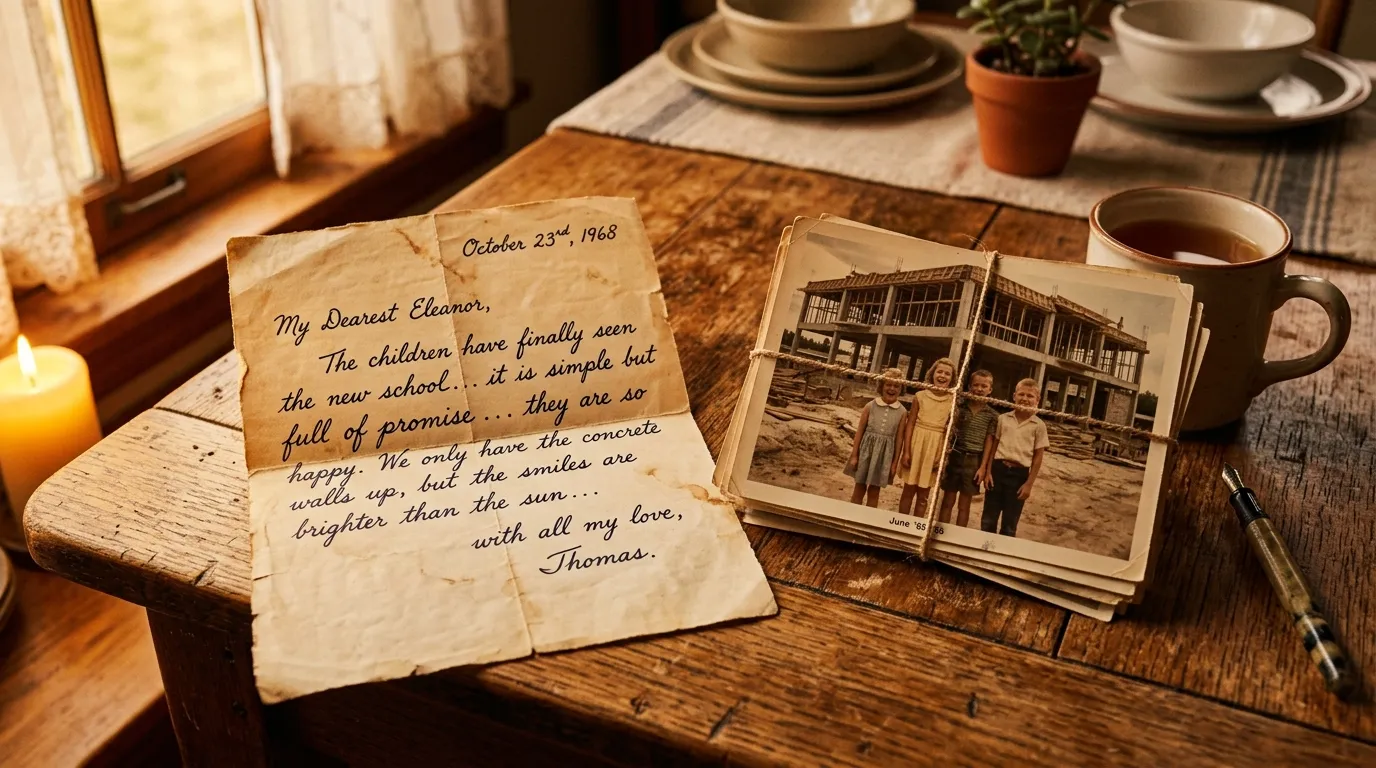 October 23rd, 1968
My Dearest Eleanor,
The children have finally seen
the new school... it is simple but
full of promise... they are so
happy. We only have the concrete
walls up, but the smiles are
brighter than the sun...
with all my love,
Thomas.
June '65